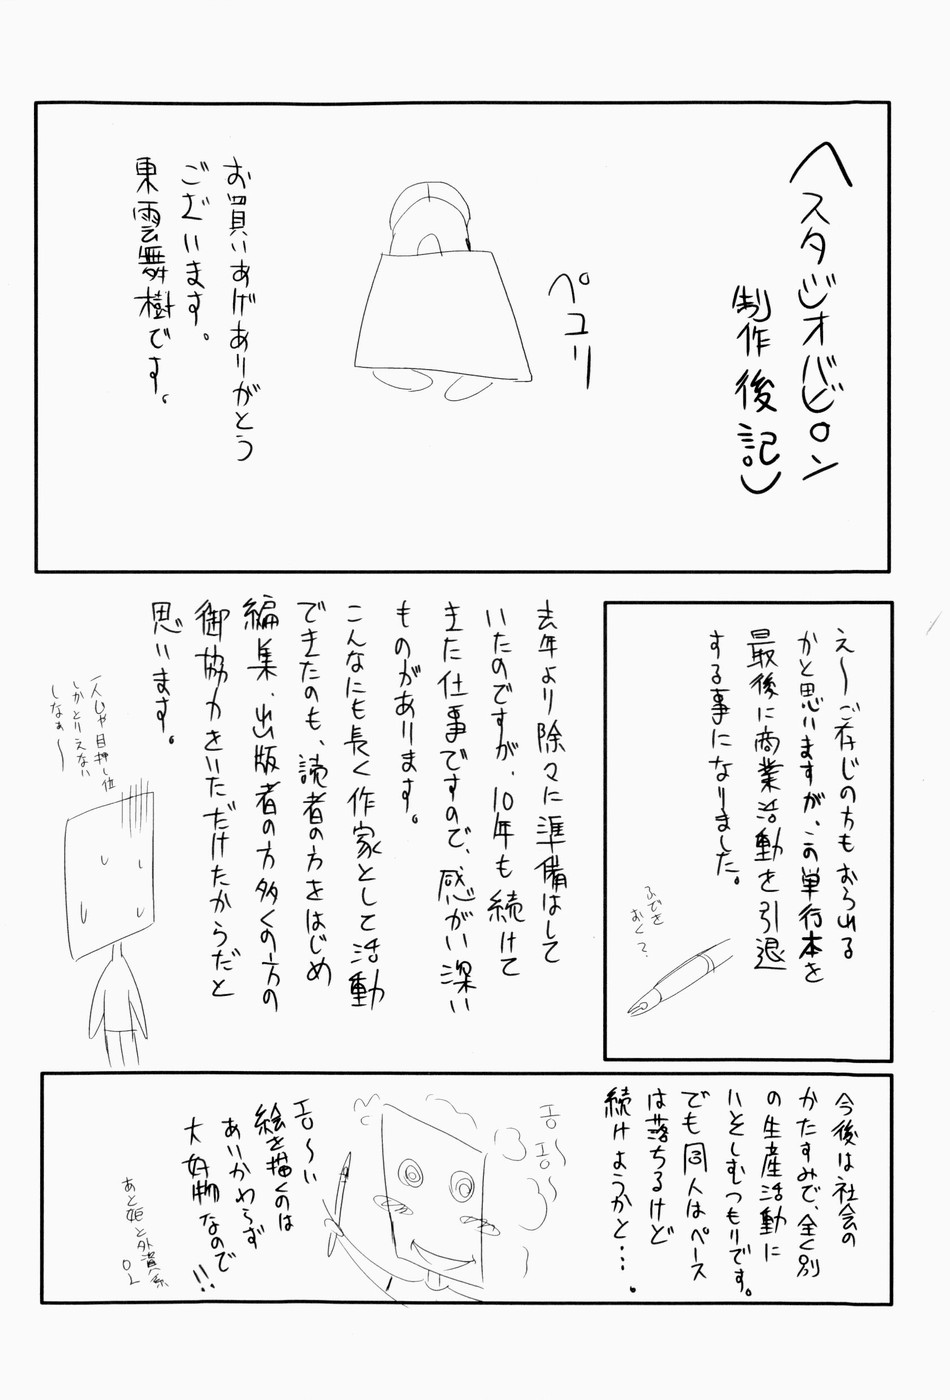 へスタジオバビロン
制作後記
ペコリ
お買いあげありがとう
ございます。
東雲舞樹です。
え〜ご存じの方もおられる
かと思いますが、この単行本を
最後に商業活動を引退
する事になりました。
ふでを
おく?
去年より除々に準備はして
いたのですが、10年も続けて
きた仕事ですので、感がい深い
ものがあります。
こんなにも長く作家として活動
できたのも、読者の方をはじめ
編集、出版者の方多くの方の
御協力をいただけたからだと
思います。
一人じゃ目押し位
しかとりえない
しなぁ〜
今後は社会の
かたすみで、全く別
の生産活動に
いそしむつもりです。
でも同人はペース
は落ちるけど
続けようかと…。
エロ
エロ〜
エロ〜い
絵を描くのは
あいかわらず
大好物なので
!!
あと姫と外資系
OL